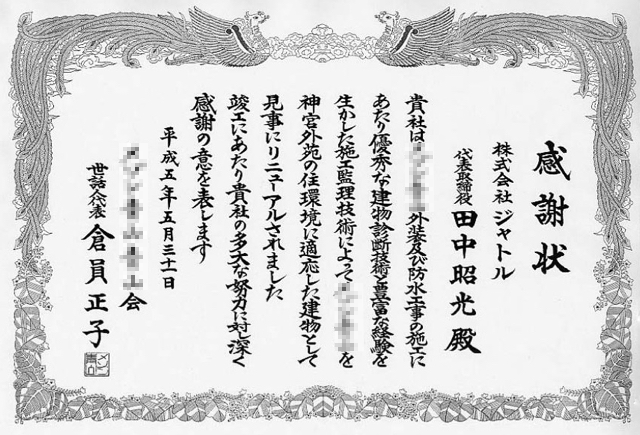 感謝状
株式会社 ジャトル
代表取締役 田中昭光 殿
貴社は外装及び防水工事の施工に
あたり優秀な建物診断技術と豊富な経験を
生かした施工監理技術によってを
神宮外苑の住環境に適応した建物として
見事にリニューアルされました
竣工にあたり貴社の多大な努力に対し深く
感謝の意を表します
平成五年五月三十一日
会
世話人代表 倉員正子